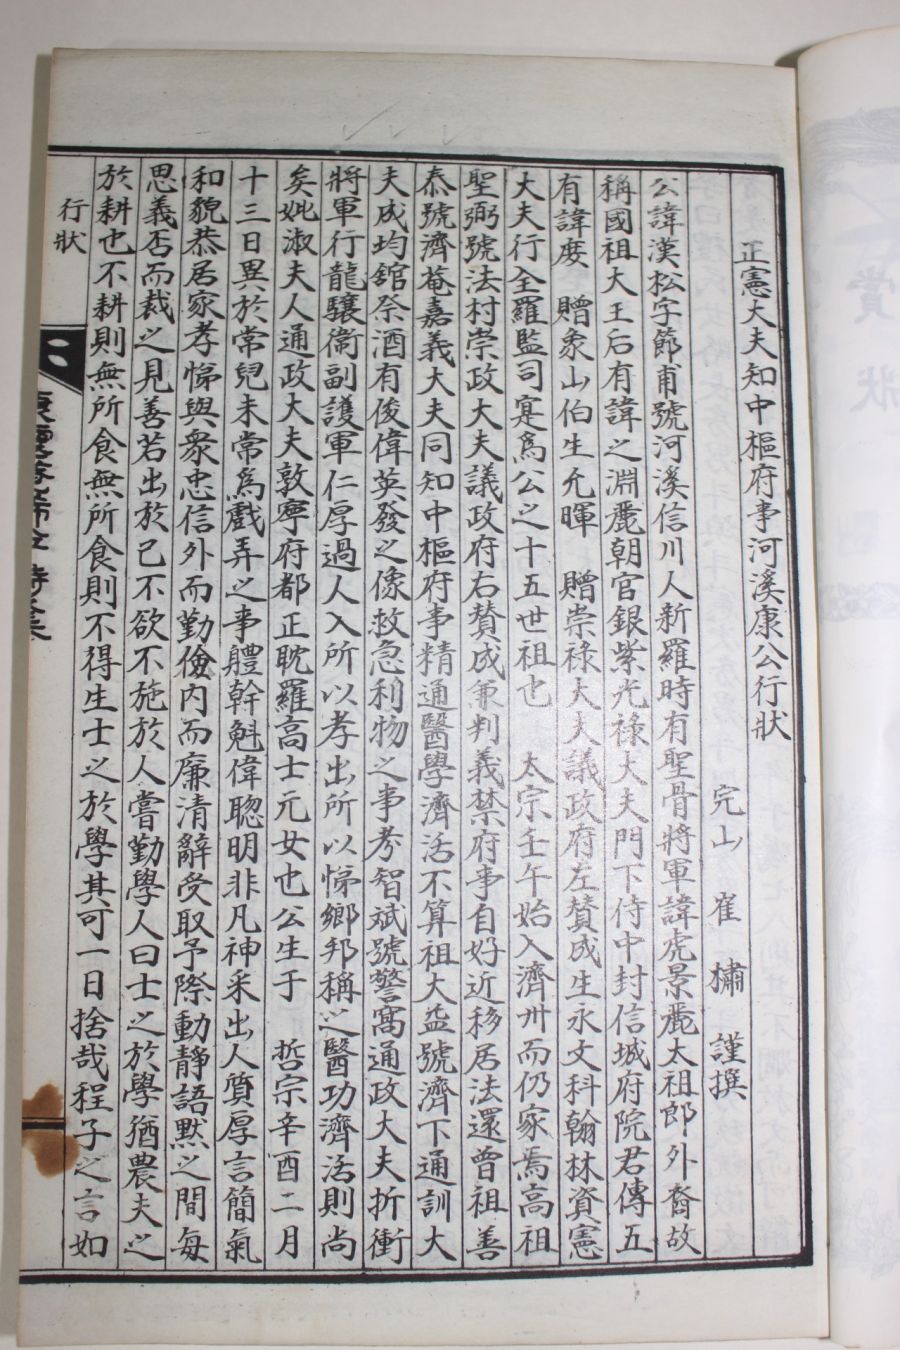 正憲大夫知中樞府事河溪康公行狀
完山 崔橚 謹撰
公諱漢松字節甫號河溪信川人新羅時有聖骨將軍諱虎景麗太祖郎外裔故
稱國祖大王后有諱之淵麗朝官銀紫光祿大夫門下侍中封信城府院君傳五
有諱度 贈象山伯生允暉 贈崇祿大夫議政府左贊成生永文科翰林資憲
大夫行全羅監司寔爲公之十五世祖也 太宗壬午始入濟州而仍家焉高祖
聖弼號法村崇政大夫議政府右贊成兼判義禁府事自好近移居法還曾祖善
泰號濟菴嘉義大夫同知中樞府事精通醫學濟活不算祖大益號濟下通訓大
夫成均舘祭酒有俊偉英發之像救急利物之事考智斌號警窩通政大夫折衝
將軍行龍驤衛副護軍仁厚過人入所以孝出所以悌鄉邦稱之醫功濟活則尚
矣妣淑夫人通政大夫敦寧府都正耽羅高士元女也公生于 哲宗辛酉二月
十三日異於常兒未常爲戲弄之事軆幹魁偉聰明非凡神采出人質厚言簡氣
和貌恭居家孝悌與衆忠信外而勤儉內而廉清辭受取予際動靜語默之間每
思義否而裁之見善若出於己不欲不施於人嘗勤學人曰士之於學猶農夫之
於耕也不耕則無所食無所食則不得生士之於學其可一日捨哉程子之言如
行狀